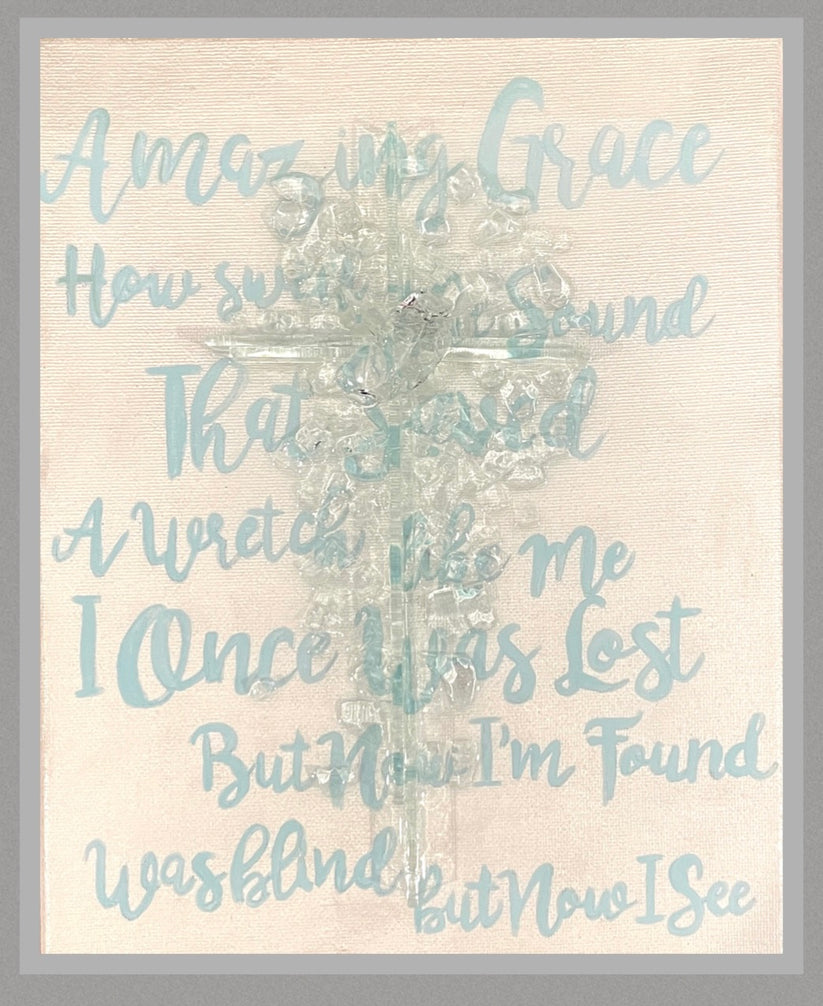 Amazing Grace
How sweet the Sound
That Saved
A Wretch like Me
I Once Was Lost
But Now I'm Found
Was blind
but Now I See